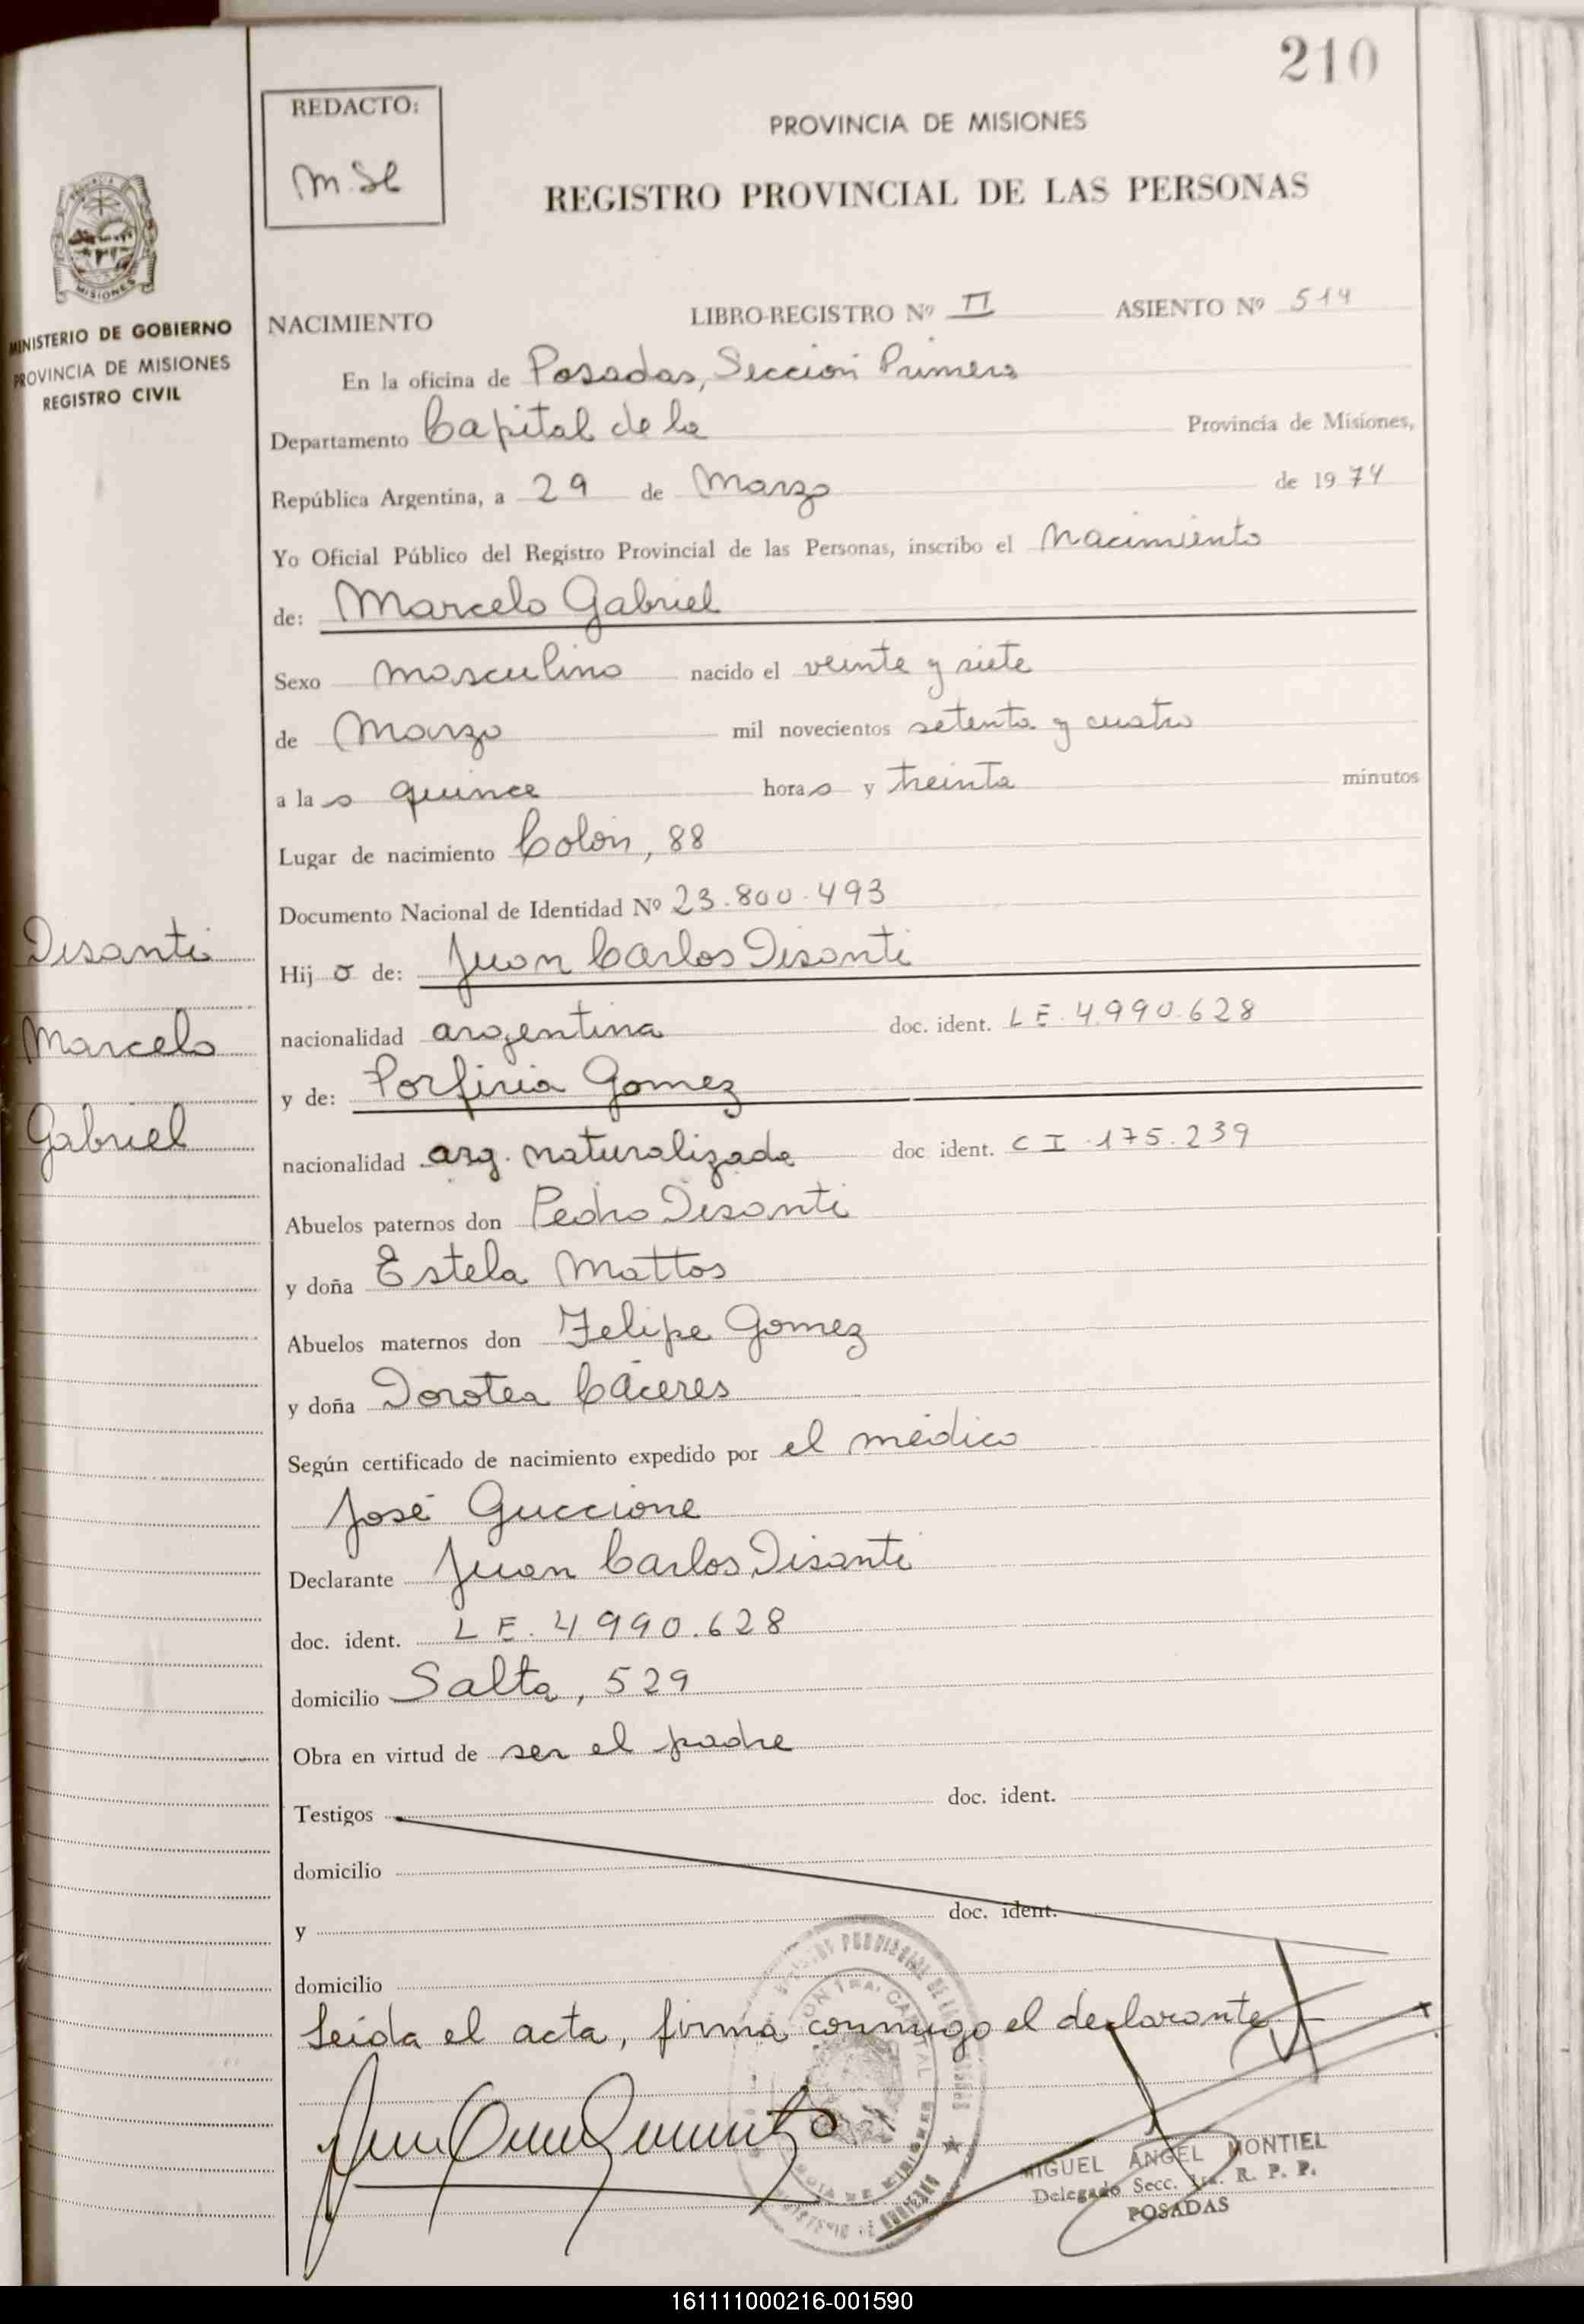 210
REDACTO:
M.Sl
PROVINCIA DE MISIONES
REGISTRO PROVINCIAL DE LAS PERSONAS
MISIONES
MINISTERIO DE GOBIERNO
PROVINCIA DE MISIONES
REGISTRO CIVIL
NACIMIENTO LIBRO-REGISTRO Nº II ASIENTO Nº 514
En la oficina de Posadas, Sección Primera
Departamento Capital de la Provincia de Misiones,
República Argentina, a 29 de Marzo de 1974
Yo Oficial Público del Registro Provincial de las Personas, inscribo el Nacimiento
de: Marcelo Gabriel
Sexo masculino nacido el veinte y siete
de Marzo mil novecientos setenta y cuatro
a las quince horas y treinta minutos
Lugar de nacimiento Colón, 88
Documento Nacional de Identidad Nº 23.800.493
Disanti
Marcelo
Gabriel
Hijo de: Juan Carlos Disanti
nacionalidad argentina doc. ident. LE. 4.990.628
y de: Porfiria Gomez
nacionalidad arg. naturalizada doc ident. CI.175.239
Abuelos paternos don Pedro Disanti
y doña Estela Mattos
Abuelos maternos don Felipe Gomez
y doña Dorotea Cáceres
Según certificado de nacimiento expedido por el médico
José Guccione
Declarante Juan Carlos Disanti
doc. ident. LE. 4990.628
domicilio Salta, 529
Obra en virtud de ser el padre
Testigos doc. ident.
domicilio
y doc. ident.
domicilio
Leída el acta, firma conmigo el declarante
MIGUEL ANGEL MONTIEL
Delegado Secc. 1ra. R. P. P.
POSADAS
161111000216-001590